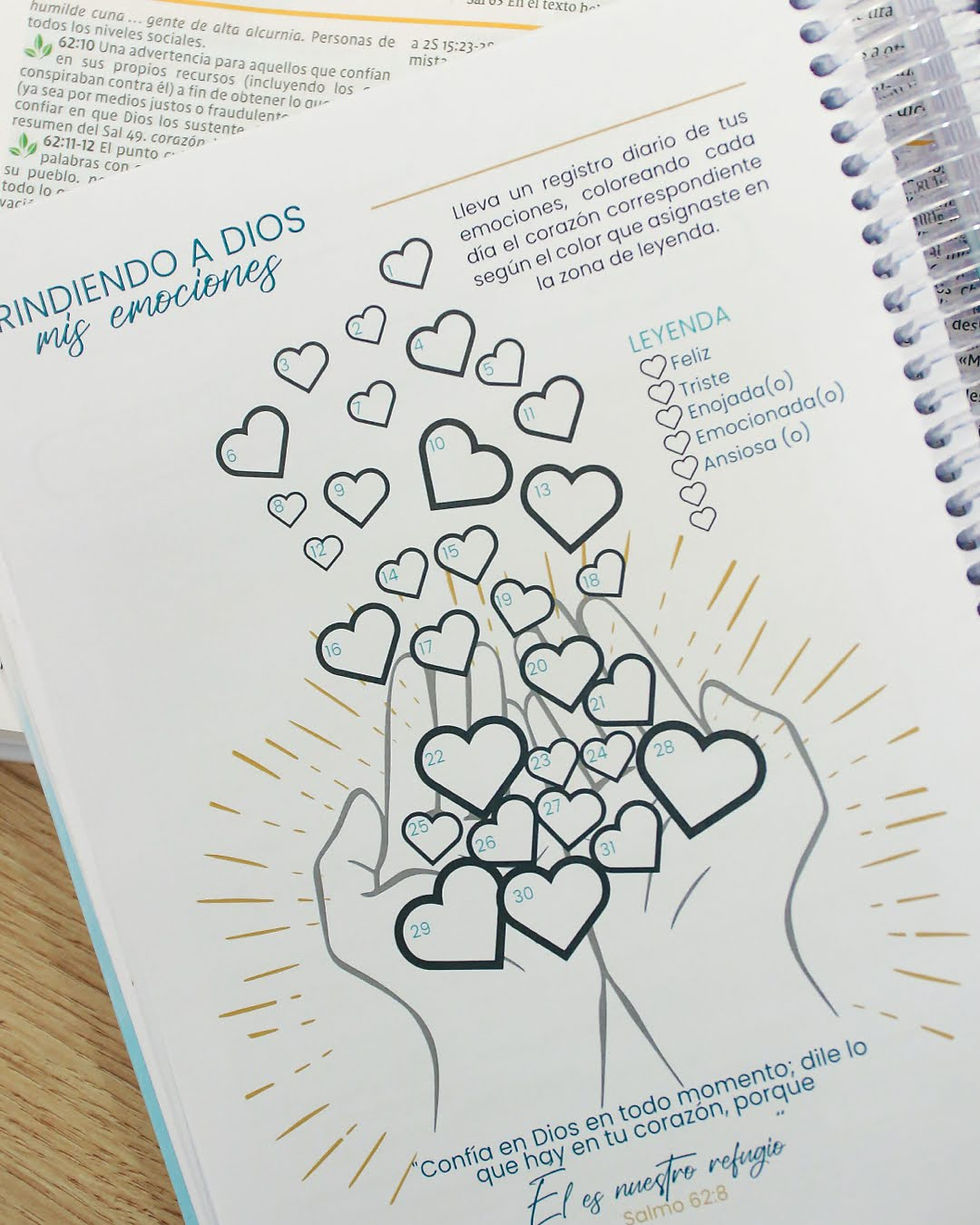 humilde cuna ... gente de alta alcurnia. Personas de
todos los niveles sociales.
62:10 Una advertencia para aquellos que confían
en sus propios recursos (incluyendo los
conspiraban contra él) a fin de obtener lo
(ya sea por medios justos o
confiar en que Dios los sustente
resumen del Sal 49. corazón
62:11-12 El punto
palabras con
su pueblo.
todo lo
En el texto
a 2S 15:23-
RINDIENDO A DIOS
mis emociones
Lleva un registro diario de tus
emociones, coloreando cada
día el corazón correspondiente
según el color que asignaste en
la zona de leyenda.
LEYENDA
Feliz
Triste
Enojada(o)
Emocionada(o)
Ansiosa (o)
1
2
3
4
5
6
7
8
9
10
11
12
13
14
15
16
17
18
19
20
21
22
23
24
25
26
27
28
29
30
31
"Confía en Dios en todo momento; dile lo
que hay en tu corazón, porque
El es nuestro refugio"
Salmo 62:8